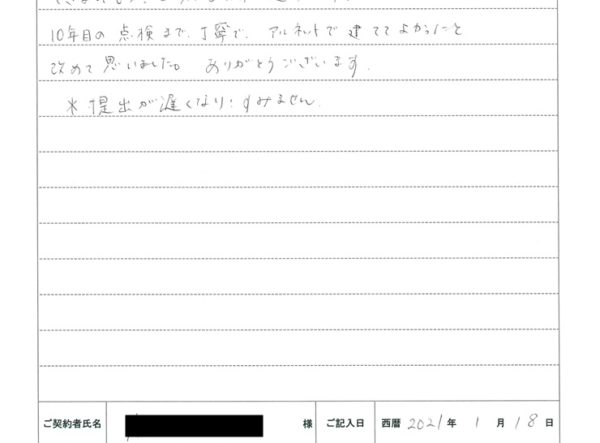 10年目の点検まで丁寧で、アルネットで建ててよかったと
改めて思いました。ありがとうございます。
*提出が遅くなり、すみません。
ご契約者氏名 様 ご記入日 西暦 2021年 1月 18日